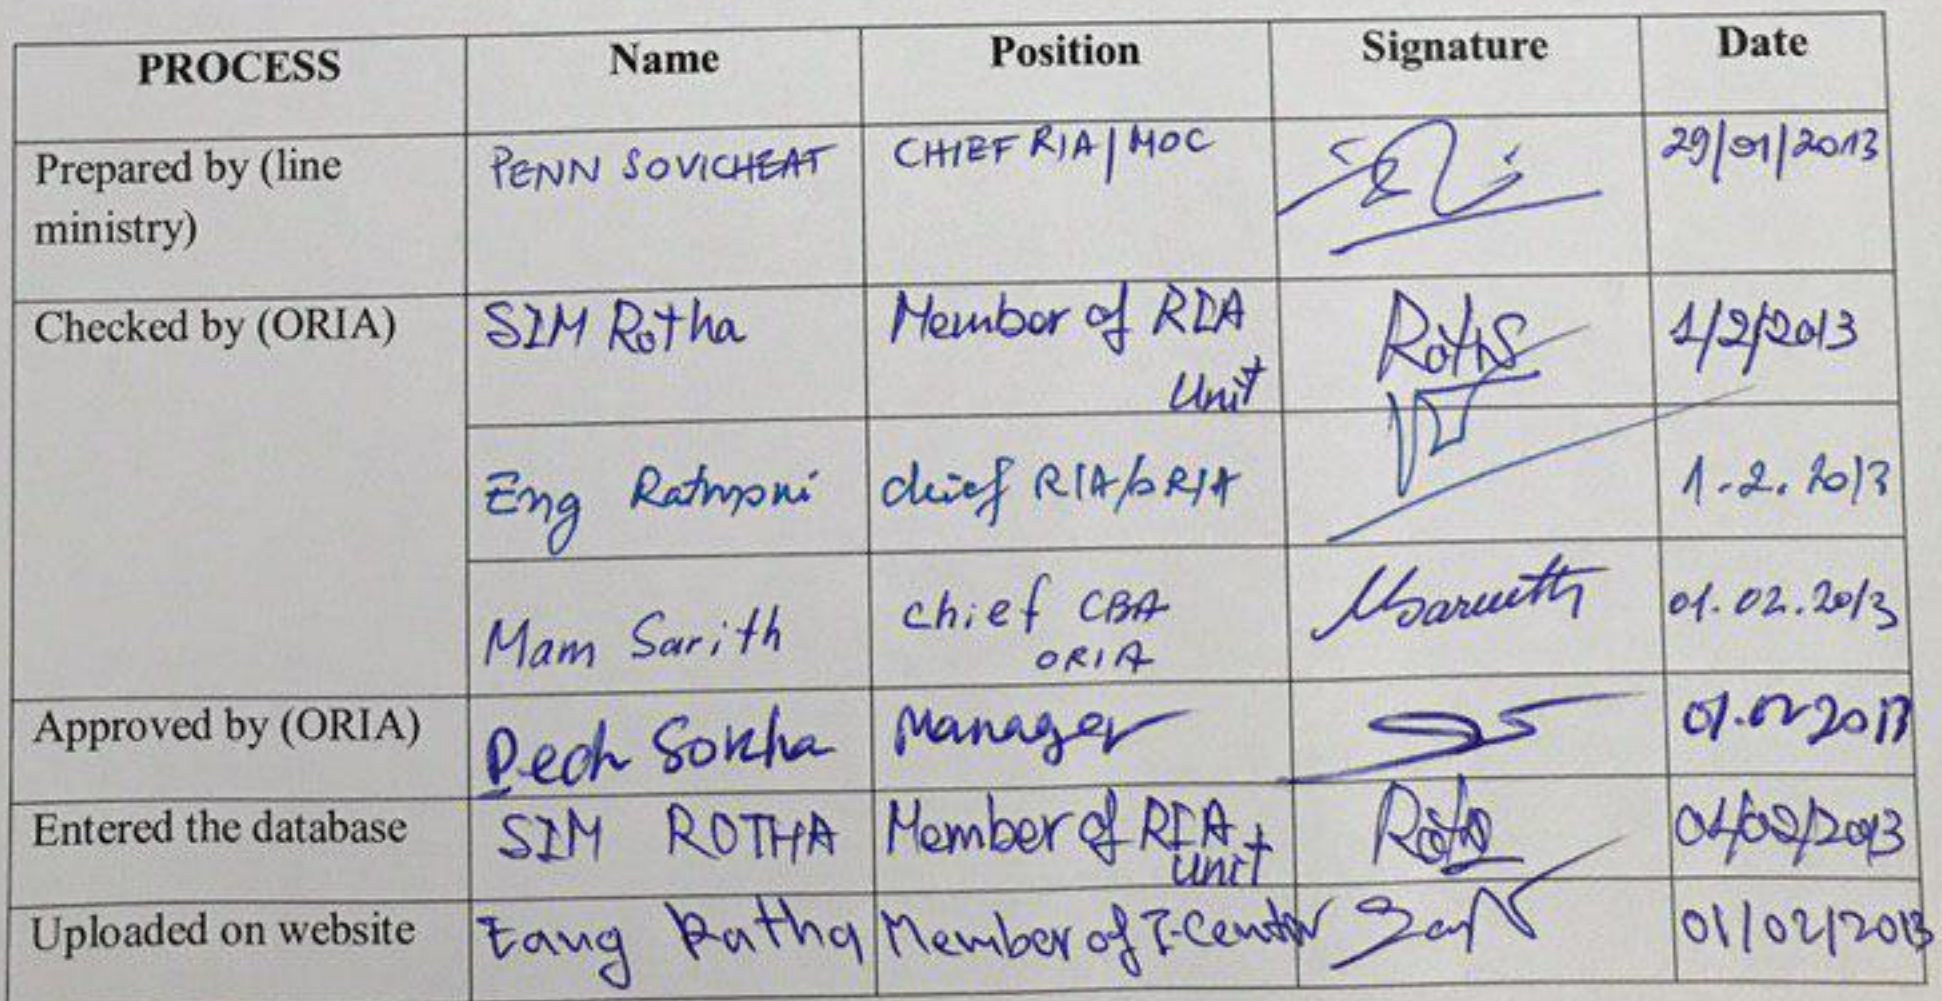 PROCESS Name Position Signature Date
Prepared by (line PENN SOVICHEAT CHIEF RIA/MOC 29/01/2013
ministry)
Checked by (ORIA) SIM Rotha Member of RIA 1/2/2013
Unit
Eng chief RIA/ORIA 1.2.2013
Mam Sarith chief CBA 01.02.2013
ORIA
Approved by (ORIA) Pech Sokha Manager 01.02 2013
Entered the database SIM ROTHA Member of RIA
Unit
Uploaded on website Eang Ratha Member of I-Center 01/02/2013